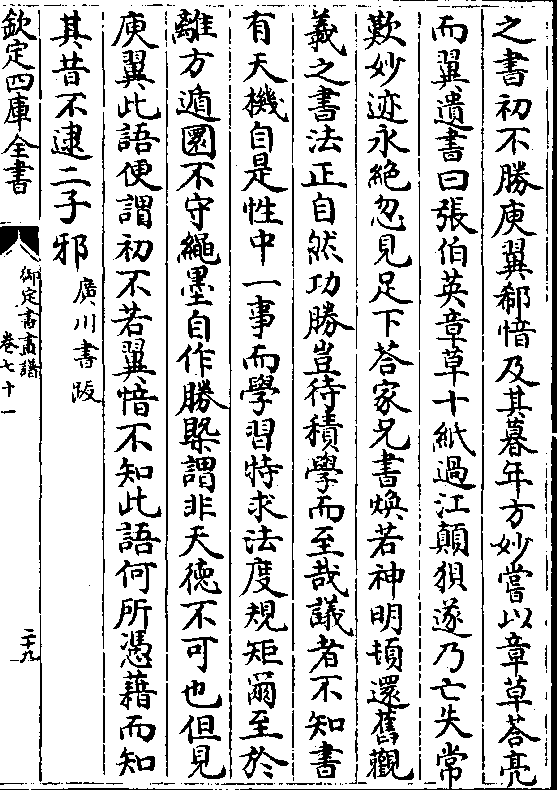 之書初不勝庾翼郗愔及其暮年方妙嘗以章草荅亮
而翼遺書曰張伯英章草十紙過江顛狽遂乃亡失常
歎妙迹永絶忽見足下荅家兄書煥若神明頓還舊觀
羲之書法正自然功勝豈待積學而至哉議者不知書
有天機自是性中一事而學習特求法度規矩爾至於
離方遁圜不守繩墨自作勝槩謂非天徳不可也但見
庾翼此語便謂初不若翼愔不知此語何所憑藉而知
其昔不逮二子邪廣川書跋
欽定四庫全書
御定書畫譜
卷七十一
二十九